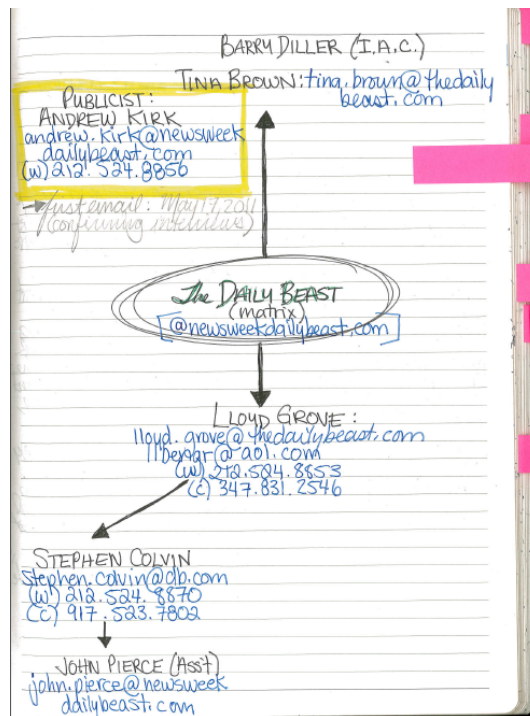 BARRY DILLER (I.A.C.)
TINA BROWN: tina.brown@thedaily
beast.com
PUBLICIST:
ANDREW KIRK
andrew.kirk@newsweek
dailybeast.com
(w) 212.524.8856
first email: May 19, 2011
(confirming interviews)
The DAILY BEAST
(matrix)
[@newsweekdailybeast.com]
LLOYD GROVE:
lloyd.grove@thedailybeast.com
@aol.com
(w) 212.524.8853
(c) 347.831.2546
STEPHEN COLVIN
stephen.colvin@db.com
(w) 212.524.8870
(c) 917.523.7802
JOHN PIERCE (Ass't)
john.pierce@newsweek
dailybeast.com